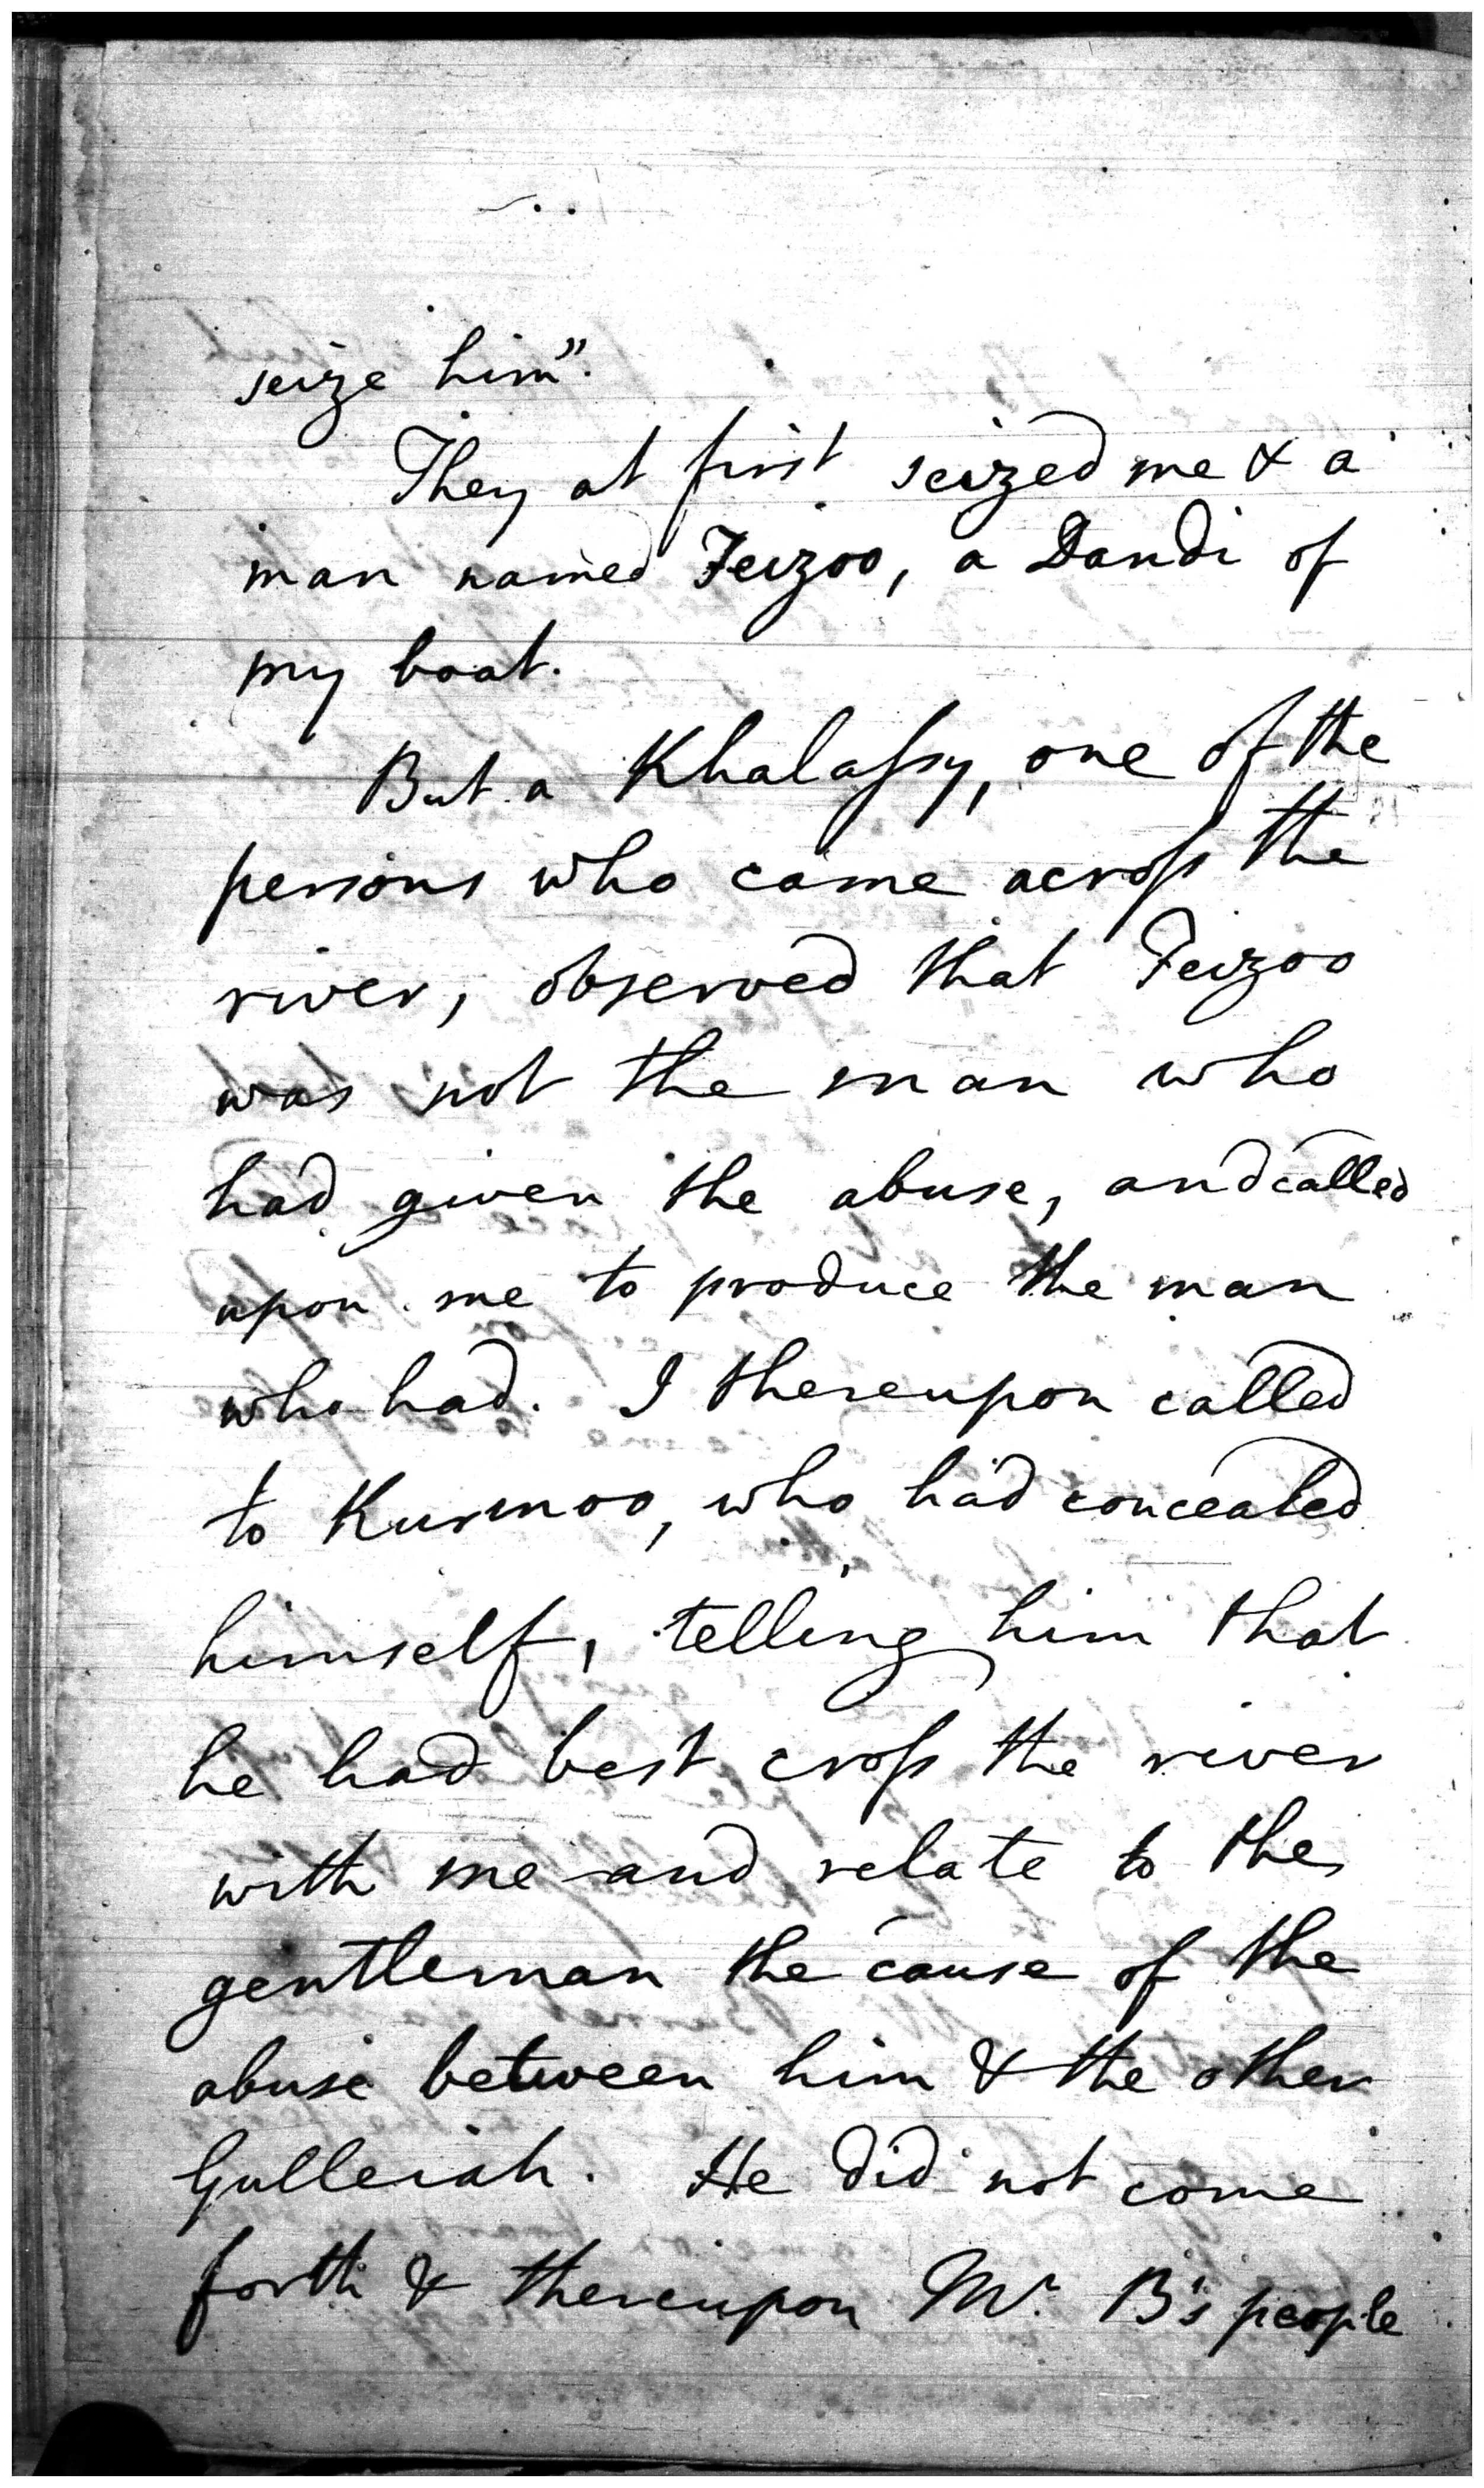 seize him".
They at first seized me & a
man named Feizoo, a Dandi of
my boat.
But a Khalaſsy, one of the
persons who came acroſs the
river, observed that Feizoo
was not the man who
had given the abuse, and called
upon me to produce the man
who had. I thereupon called
to Kurmoo, who had concealed
himself, telling him that
he had best croſs the river
with me and relate to the
gentleman the cause of the
abuse between him & the other
Gulleiah. He did not come
forth & thereupon Mr. B's people